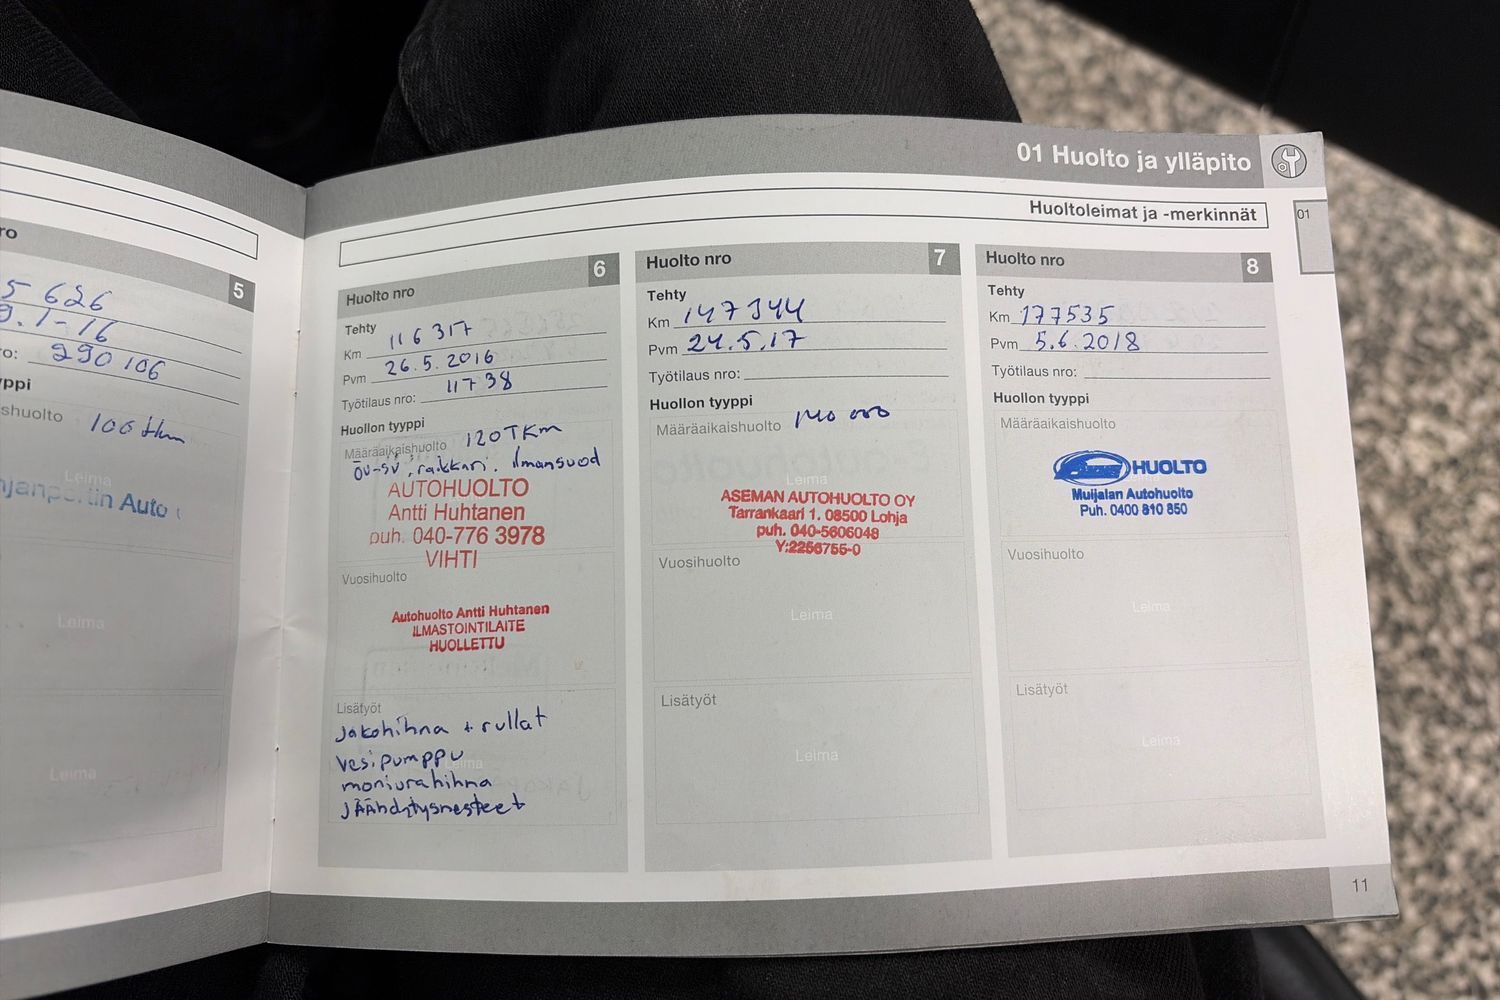 01 Huolto ja ylläpito
Huoltoleimat ja -merkinnät
01
5
5 626
9.1-16
290106
100 tkm
Leima
Auto
Leima
Leima
Huolto nro 6
Tehty
Km 116 317
Pvm 26.5.2016
Työtilaus nro: 11738
Huollon tyyppi
Määräaikaishuolto 120TKm
öv-sv, raikkari. ilmansuod
AUTOHUOLTO
Antti Huhtanen
puh. 040-776 3978
VIHTI
Vuosihuolto
Autohuolto Antti Huhtanen
ILMASTOINTILAITE
HUOLLETTU
Lisätyöt
Jakohihna + rullat
vesipumppu
Leima
moniurahihna
JÄÄhdytysnesteet
Huolto nro 7
Tehty
Km 147344
Pvm 24.5.17
Työtilaus nro:
Huollon tyyppi
Määräaikaishuolto 140 000
Leima
ASEMAN AUTOHUOLTO OY
Tarrankaari 1. 08500 Lohja
puh. 040-5606048
Y:2256755-0
Vuosihuolto
Leima
Lisätyöt
Leima
Huolto nro 8
Tehty
Km 177535
Pvm 5.6.2018
Työtilaus nro:
Huollon tyyppi
Määräaikaishuolto
HUOLTO
Muijalan Autohuolto
Puh. 0400 810 850
Vuosihuolto
Leima
Lisätyöt
Leima
11